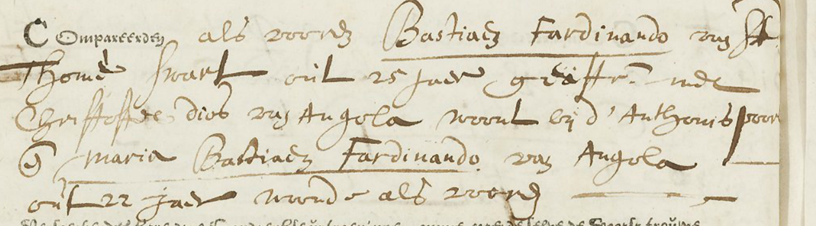 Compareerden als vooren Bastiaen Fardinando van St
Thomé swart out 25 Jaer geass. met
Christoffel dios van Angola woont bij d' Anthonis poor
& Maria Bastiaen Fardinando van Angola
out 22 Jaer woonde als vooren